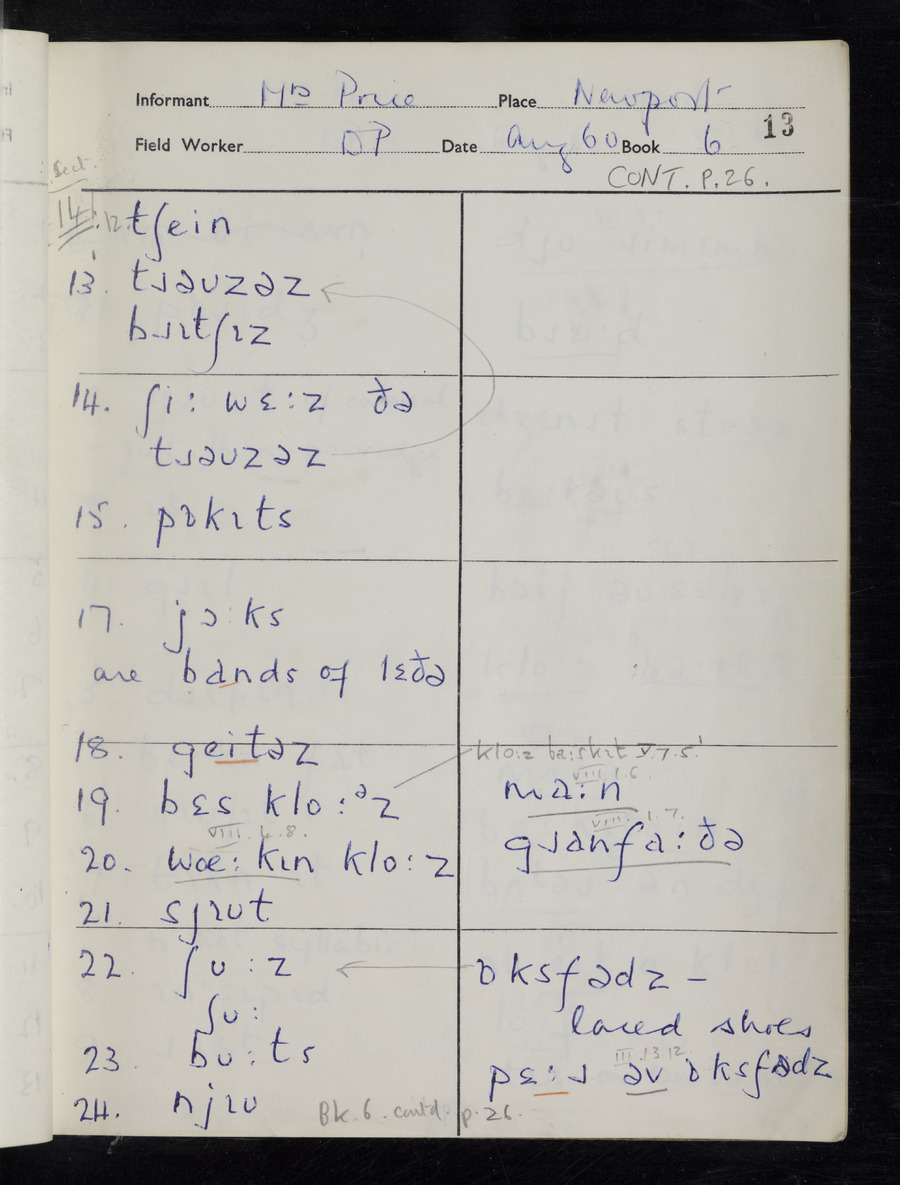 Informant Mrs Price Place Newport
13
Field Worker DP Date Aug 60 Book 6
CONT. P.26.
Sect.
14 12. tʃein
13. tɹəʊzəz
bɹɪtʃɪz
14. ʃi: wɛ:z ðə
tɹəʊzəz
15. pɒkɪts
17. jɔ:ks
are bands of lɛðə
18. geitəz
19. bɛs klo:ᵊz
VIII. 4. 8.
20. wœ:kɪn klo:z
21. sjɪʊt
22. ʃʊ:z
ʃʊ:
23 bʊ:ts
24. njɪʊ
klo:z ba:skɪt V.7.5.
VIII.1.6.
ma:n
VIII. 1.7.
gɹanfa:ðə
ɒksfədz –
laced shoes
III.13.12.
pɛ:ɹ əv ɒksfədz
Bk. 6. contd. p. 26.